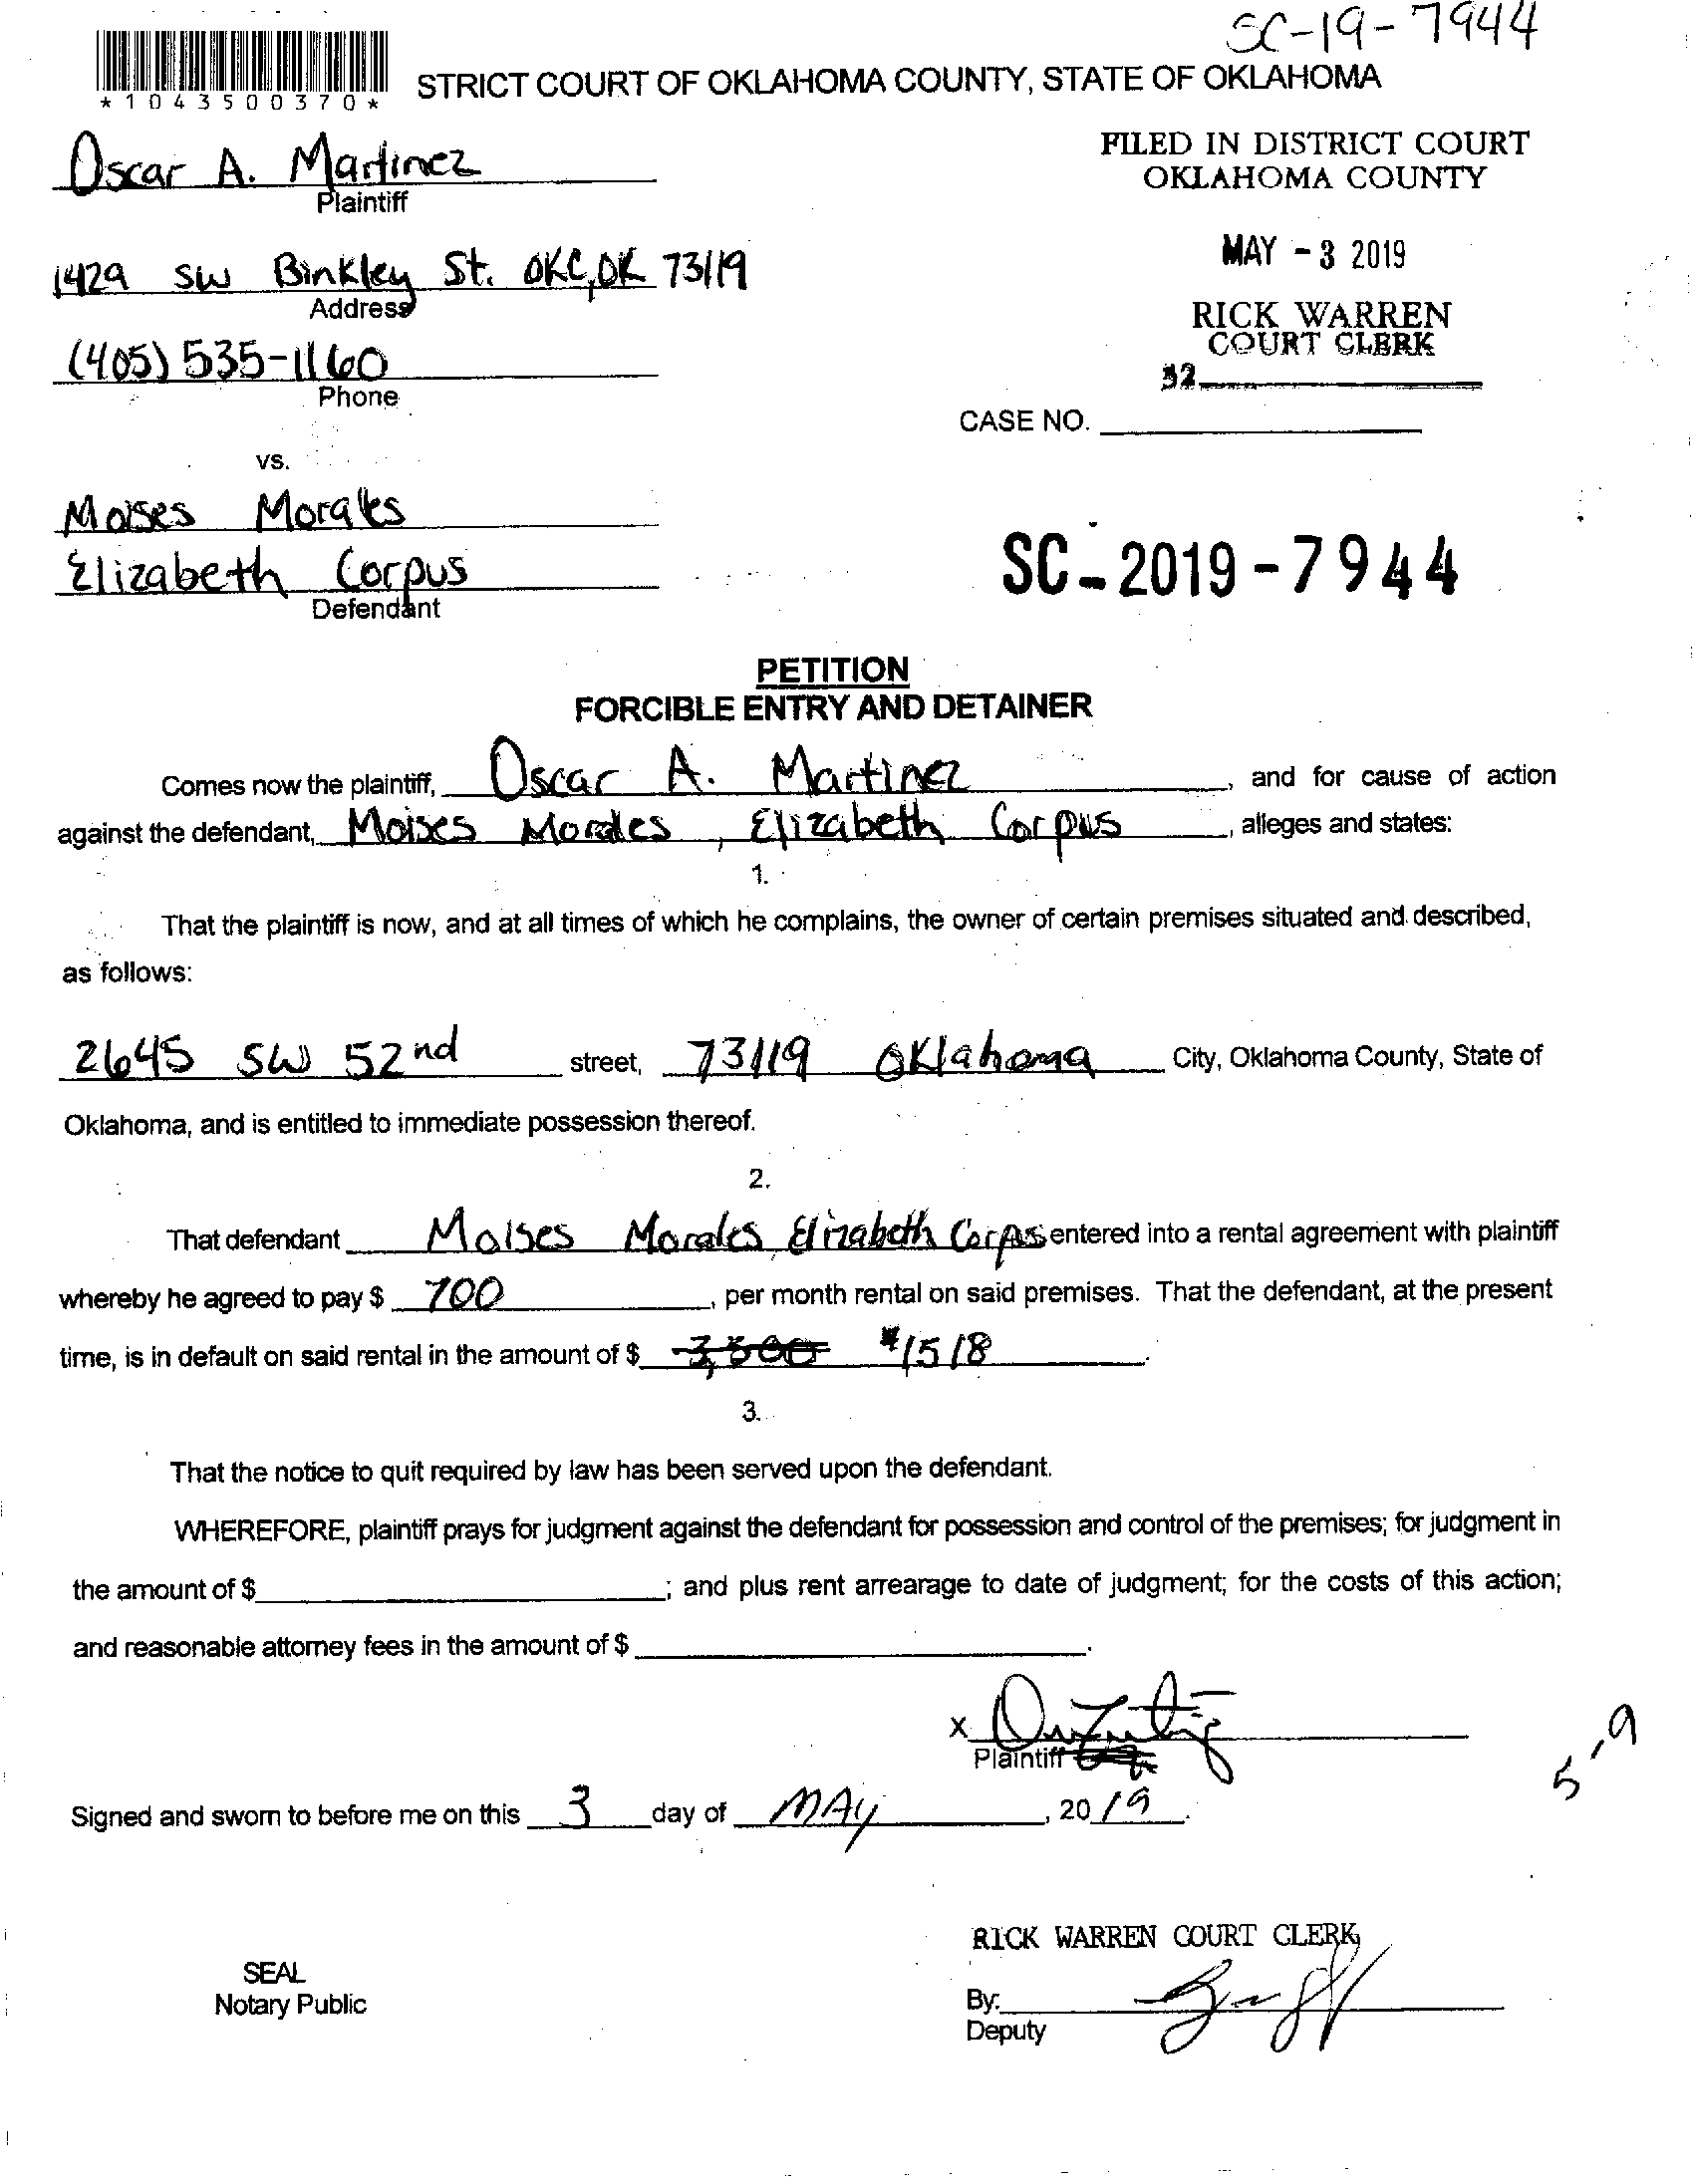 SC-19-7944
*1043500370*
STRICT COURT OF OKLAHOMA COUNTY, STATE OF OKLAHOMA
Oscar A. Martinez
Plaintiff
FILED IN DISTRICT COURT
OKLAHOMA COUNTY
1429 SW Binkley St. OKC, OK 73119
Address
MAY - 3 2019
RICK WARREN
COURT CLERK
(405) 535-1160
Phone
32
CASE NO.
vs.
Moises Morales
Elizabeth Corpus
Defendant
SC-2019-7944
PETITION
FORCIBLE ENTRY AND DETAINER
Comes now the plaintiff, Oscar A. Martinez, and for cause of action
against the defendant, Moises Morales, Elizabeth Corpus, alleges and states:
1.
That the plaintiff is now, and at all times of which he complains, the owner of certain premises situated and described,
as follows:
2645 SW 52nd street, 73119 Oklahoma City, Oklahoma County, State of
Oklahoma, and is entitled to immediate possession thereof.
2.
That defendant Moises Morales, Elizabeth Corpus entered into a rental agreement with plaintiff
whereby he agreed to pay $ 700, per month rental on said premises. That the defendant, at the present
time, is in default on said rental in the amount of $ 3,500 $1518.
3.
That the notice to quit required by law has been served upon the defendant.
WHEREFORE, plaintiff prays for judgment against the defendant for possession and control of the premises; for judgment in
the amount of $; and plus rent arrearage to date of judgment; for the costs of this action;
and reasonable attorney fees in the amount of $.
x
Plaintiff
5-9
Signed and sworn to before me on this 3 day of MAy, 2019.
RICK WARREN COURT CLERK
SEAL
Notary Public
By:
Deputy